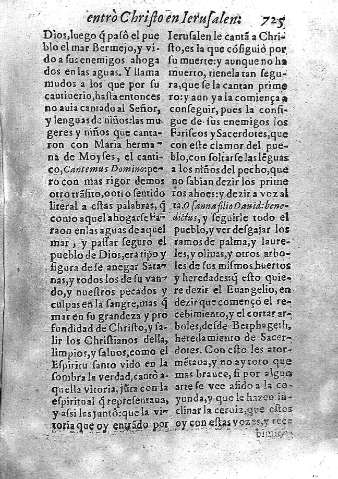 entrò Christo en Ierusalen. 725
Dios, luego q̃ pasó el pue
blo el mar Bermejo, y vi-
do a sus enemigos ahoga
dos en las aguas. Y llama
mudos a los que por su
cautiuerio, hasta entonces
no auia cantado al Señor,
y lenguas de niños: las mu
geres y niños que canta-
ron con Maria herma
na de Moyses, el canti-
co, Cantemus Domino: pe-
ro con mas rigor demos
otro trásito, o otro sentido
literal a estas palabras, q̃
como aquel ahogarse Fa-
raon en las aguas de aquel
mar, y passar seguro el
pueblo de Dios, era tipo y
figura de se anegar Sata-
nas, y todos los de su van-
do, y nuestros pecados y
culpas en la sangre, mas q̃
mar en su grandeza y pro
fundidad de Christo, y sa-
lir los Christianos della,
limpios, y saluos, como el
Espiritu santo vido en la
sombra la verdad, cantò a-
quella vitoria, júta con la
espiritual q̃ representaua,
y assi las juntò: que la vi-
toria que oy entrado por
Ierusalen le cantã a Chri-
sto, es la que cósiguiò por
su muerte: y aunque no ha
muerto, tienela tan segu-
ra, que se la cantan prime
ro; y aun ya la comiença a
conseguir, pues la consi-
gue de sus enemigos los
Fariseos y Sacerdotes, que
con este clamor del pue-
blo, con soltarse las léguas
a los niños del pecho, que
no sabian dezir los prime
ros ahoes: y dezir a voz al
ta, Osanna filio Dauid: bene-
dictus, y seguirle todo el
pueblo, y ver desgajar los
ramos de palma, y laure-
les, y oliuas, y otros arbo-
les de sus mismos huertos
y heredades q̃ esto quie-
re dezir el Euangelio, en
dezir que començó el re-
cebimiento, y el cortar ar-
boles, desde Bethphageth,
heredamiento de Sacer-
dotes. Con esto les ator-
mẽtaua, y no ay toro que
mas brauee, si por algun
arte se vee asido a la co-
yunda, y que le hazen in-
clinar la ceruiz, que estos
oy con estas vozes, y rece